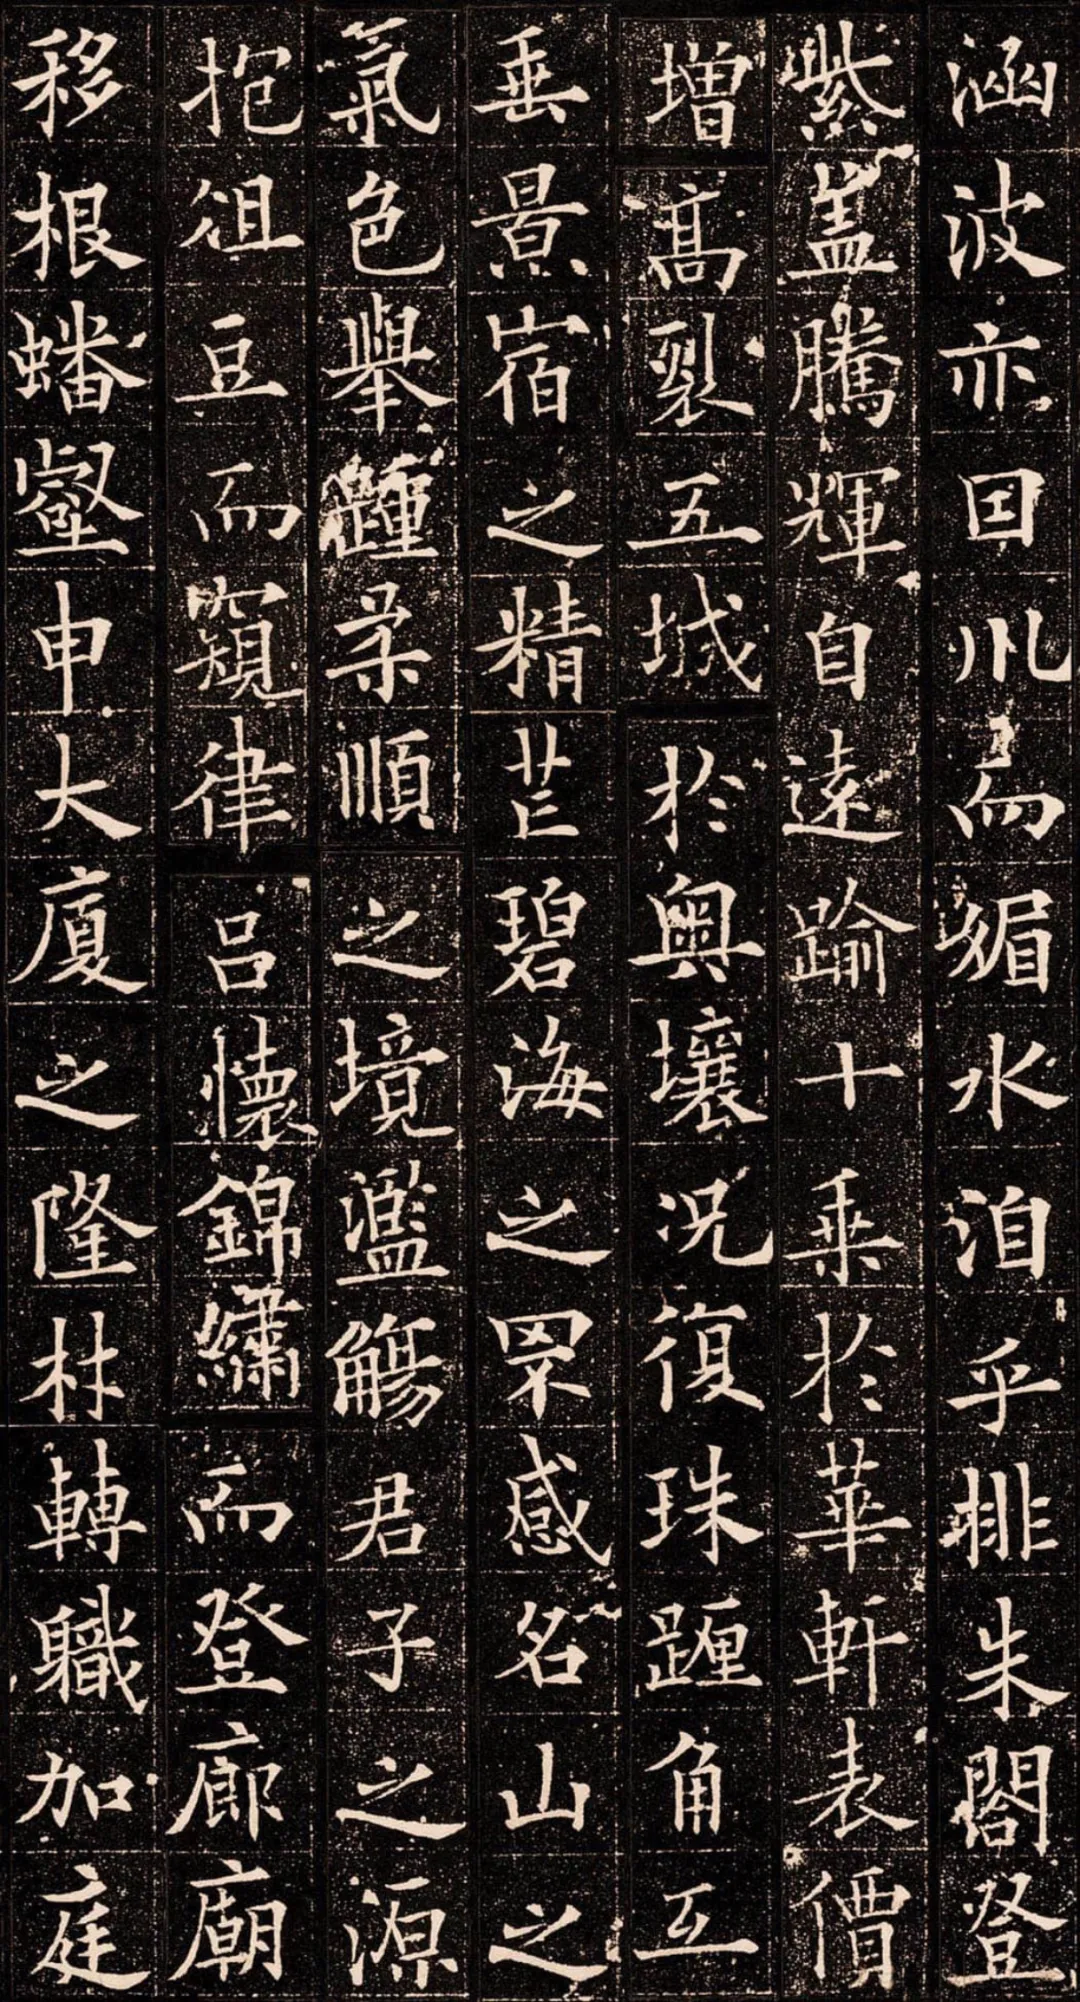 涵波亦因川而媚水洎乎排朱閣登
紫盖騰輝自遠踰十乘於華軒表價
增高裂五城於奧壤況復珠躔角互
垂景宿之精芒碧海之罘感名山之
氣色舉踵柔順之境濫觴君子之源
抱俎豆而窺律呂懷錦繡而登廊廟
移根蟠壑申大廈之隆材轉職加庭